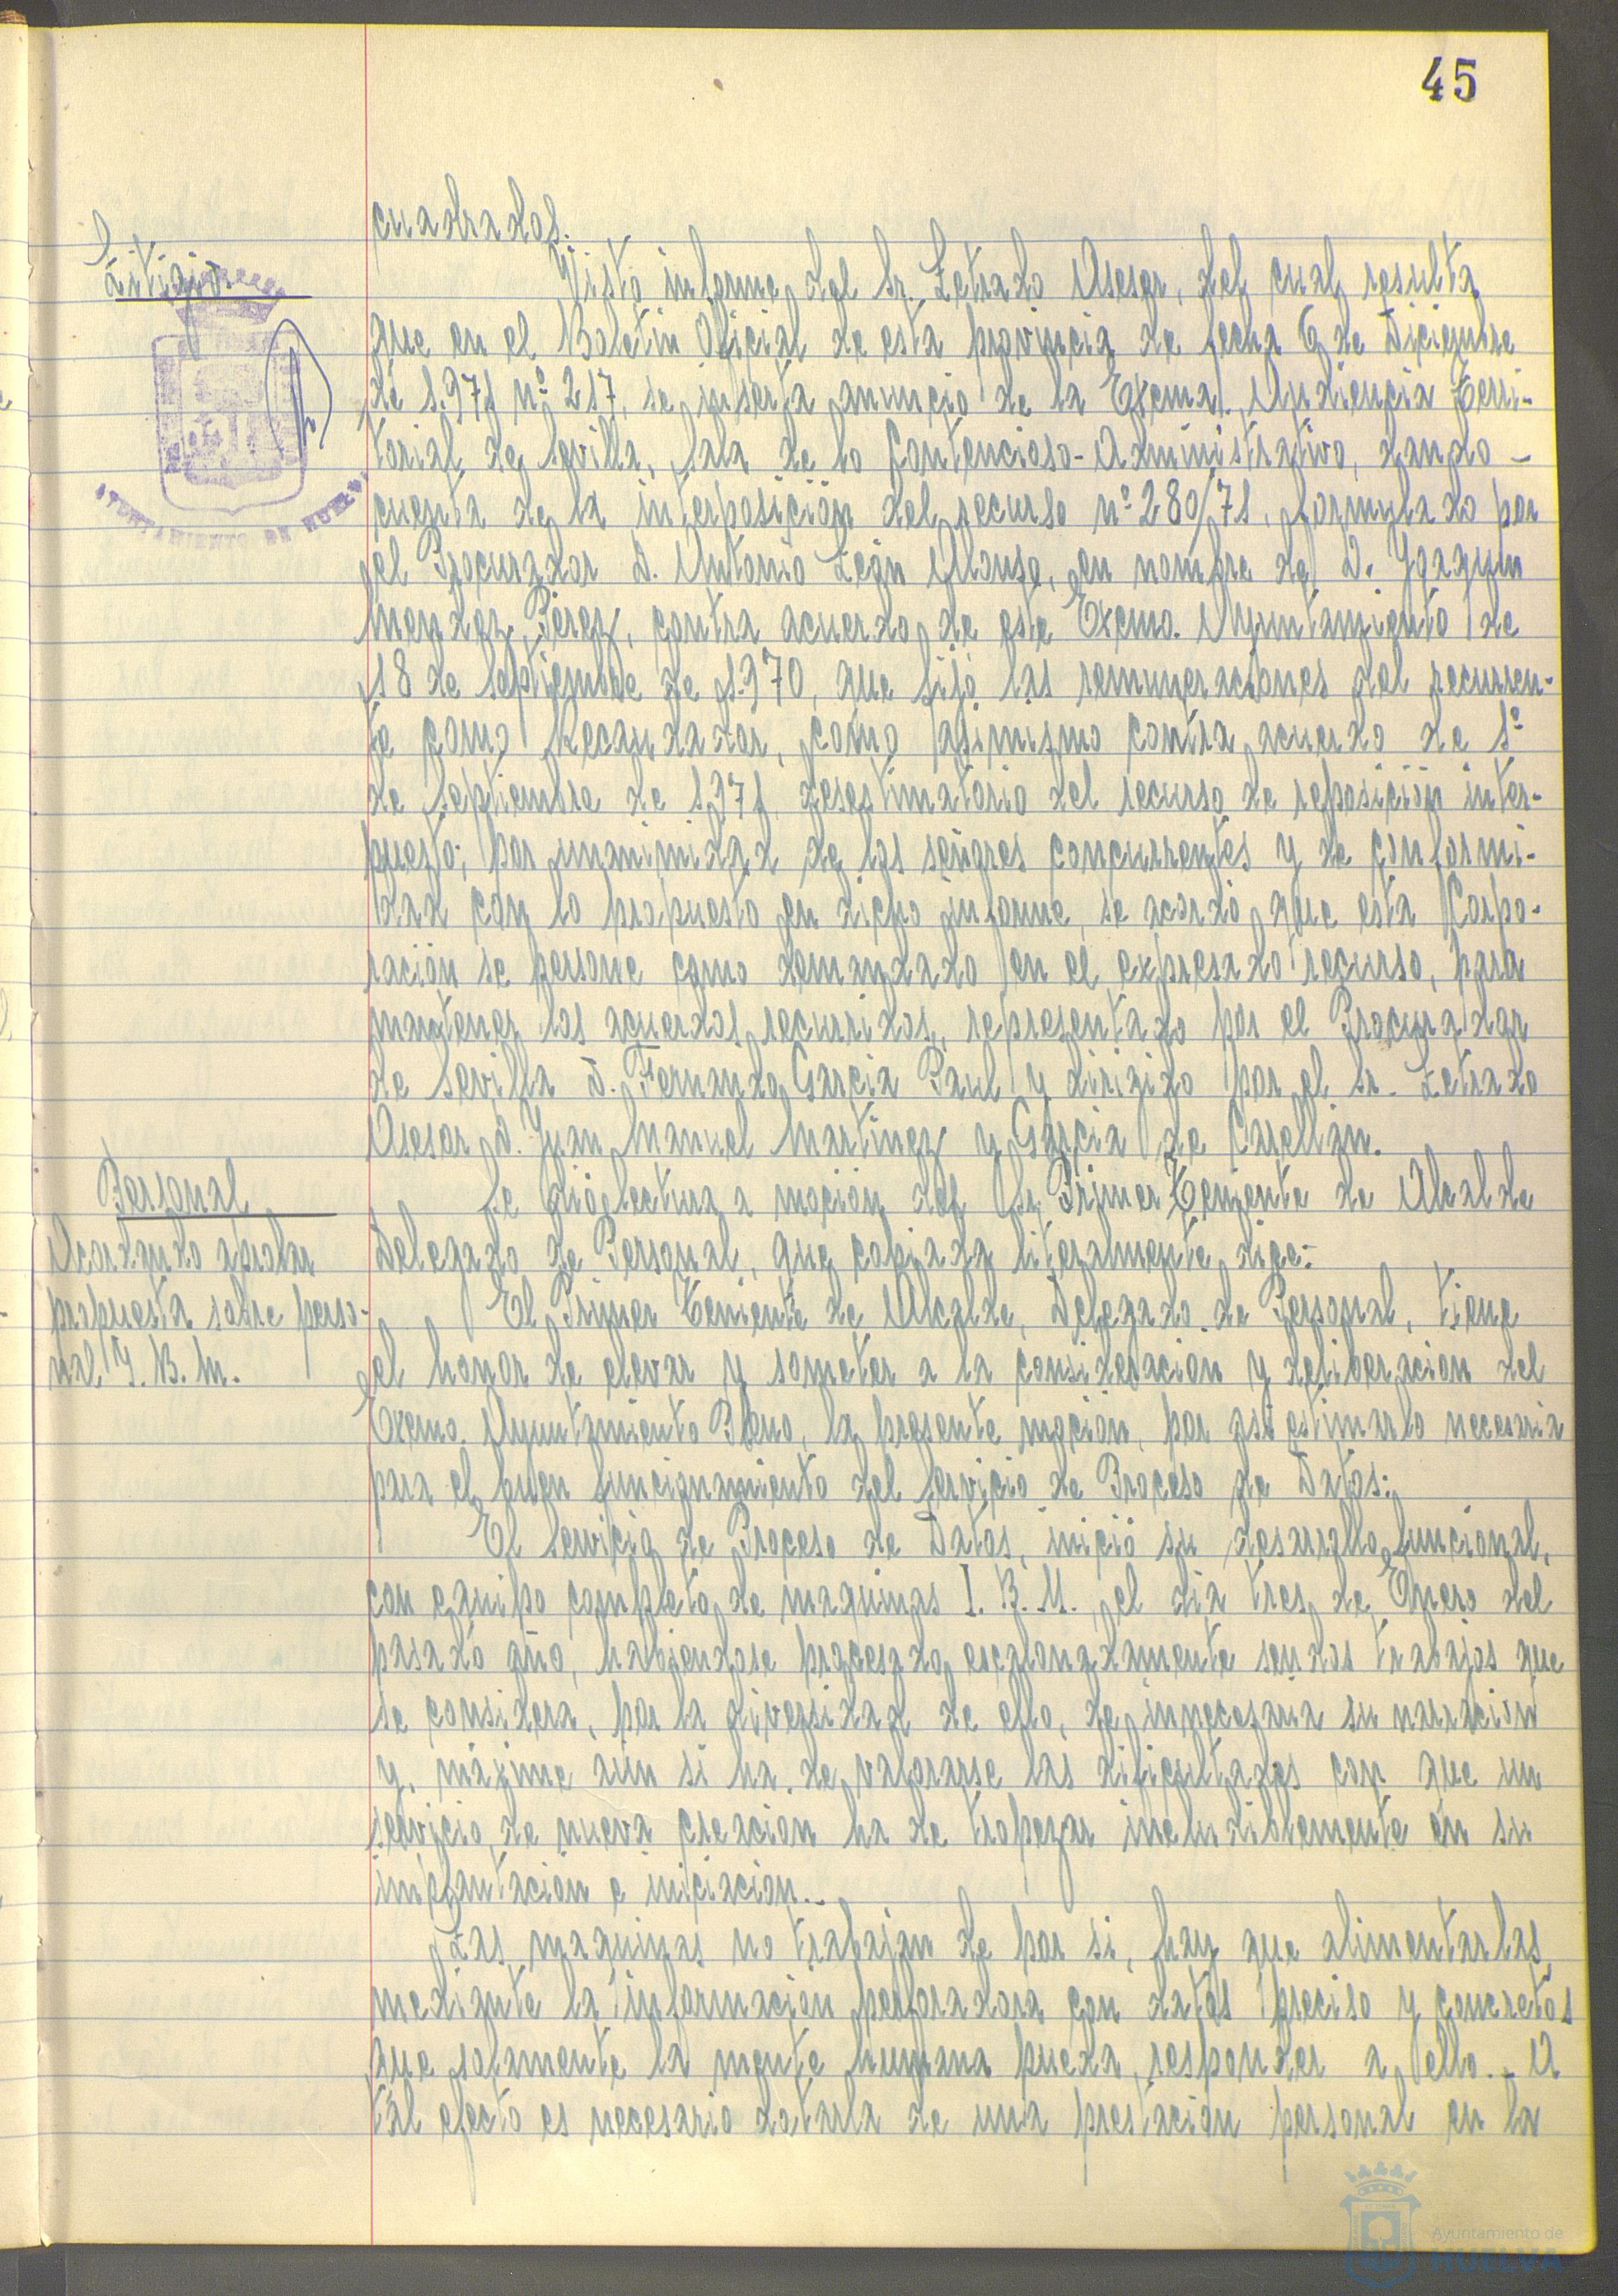 45
cuadrados.
Litigio
Visto informe del Sr. Letrado Asesor, del cual resulta
que en el Boletin Oficial de esta provincia de fecha 6 de Diciembre
de 1.971 nº 217, se inserta anuncio de la Excma. Audiencia Terri-
torial de Sevilla, Sala de lo Contencioso-Administrativo, dando -
cuenta de la interposición del recurso nº 280/71, formulado por
el Procurador D. Antonio León Alonso, en nombre de D. Joaquin
Mendez Perez, contra acuerdo de este Excmo. Ayuntamiento de
18 de Septiembre de 1.970, que fijó las remuneraciones del recurren-
te como Recaudador, como asimismo contra acuerdo de 1º
de Septiembre de 1.971, desestimatorio del recurso de reposición inter-
puesto; por unanimidad de los señores concurrentes y de conformi-
dad con lo propuesto en dicho informe, se acordó que esta Corpo-
ración se persone como demandado en el expresado recurso, para
mantener los acuerdos recurridos, representado por el Procurador
de Sevilla D. Fernando Garcia Paul y dirigido por el Sr. Letrado
Asesor D. Juan Manuel Martinez y Garcia de
Personal
Acordando aprobar
propuesta sobre perso-
nal I.B.M.
Se dió lectura a moción del Sr. Primer Teniente de Alcalde
Delegado de Personal, que copiada literalmente dice:
El Primer Teniente de Alcalde, Delegado de Personal, tiene
el honor de elevar y someter a la consideración y deliberación del
Excmo. Ayuntamiento Pleno, la presente moción, por asi estimarlo necesaria
para el buen funcionamiento del Servicio de Proceso de Datos:
El Servicio de Proceso de Datos, inició su desarrollo funcional,
con equipo completo de maquinas I.B.M., el dia tres de Enero del
pasado año, habiendose procesado escalonadamente sendos trabajos que
se considera, por la diversidad de ello, de innecesaria su narración
y, máxime aún si ha de valorarse las dificultades con que un
servicio de nueva creación ha de tropezar ineludiblemente en su
implantación e iniciacion.
Las maquinas no trabajan de por si, hay que alimentarlas
mediante la información perforadora con datos preciso y concretos
que solamente la mente humana pueda responder a ello.- A
tal efecto es necesario dotarla de una prestacion personal en la
AYUNTAMIENTO DE HUELVA
Ayuntamiento de
HUELVA